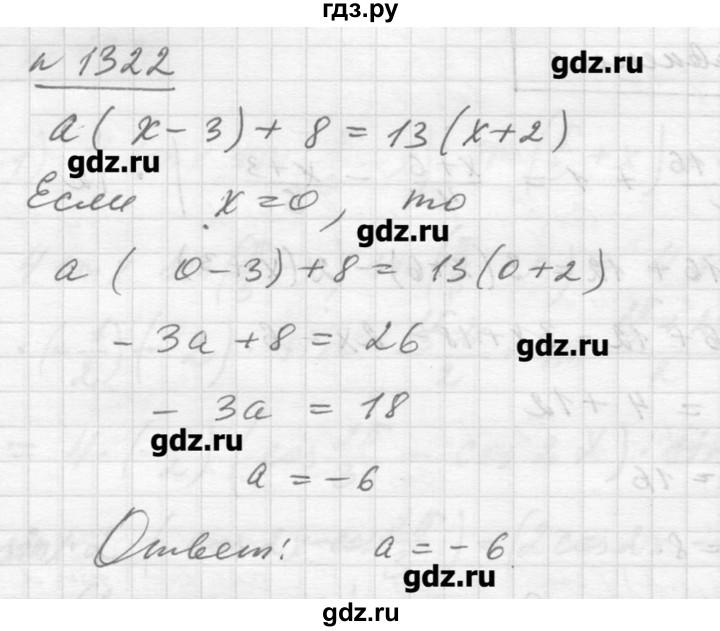 гдз.ру
n 1322
gdz.ru
a ( x - 3 ) + 8 = 13 ( x + 2 )
gdz.ru
Если x = 0, то
gdz.ru
a ( 0 - 3 ) + 8 = 13 ( 0 + 2 )
- 3a + 8 = 26
gdz.ru
- 3a = 18
gdz.ru
a = - 6
Ответ: a = - 6
gdz.ru
gdz.ru